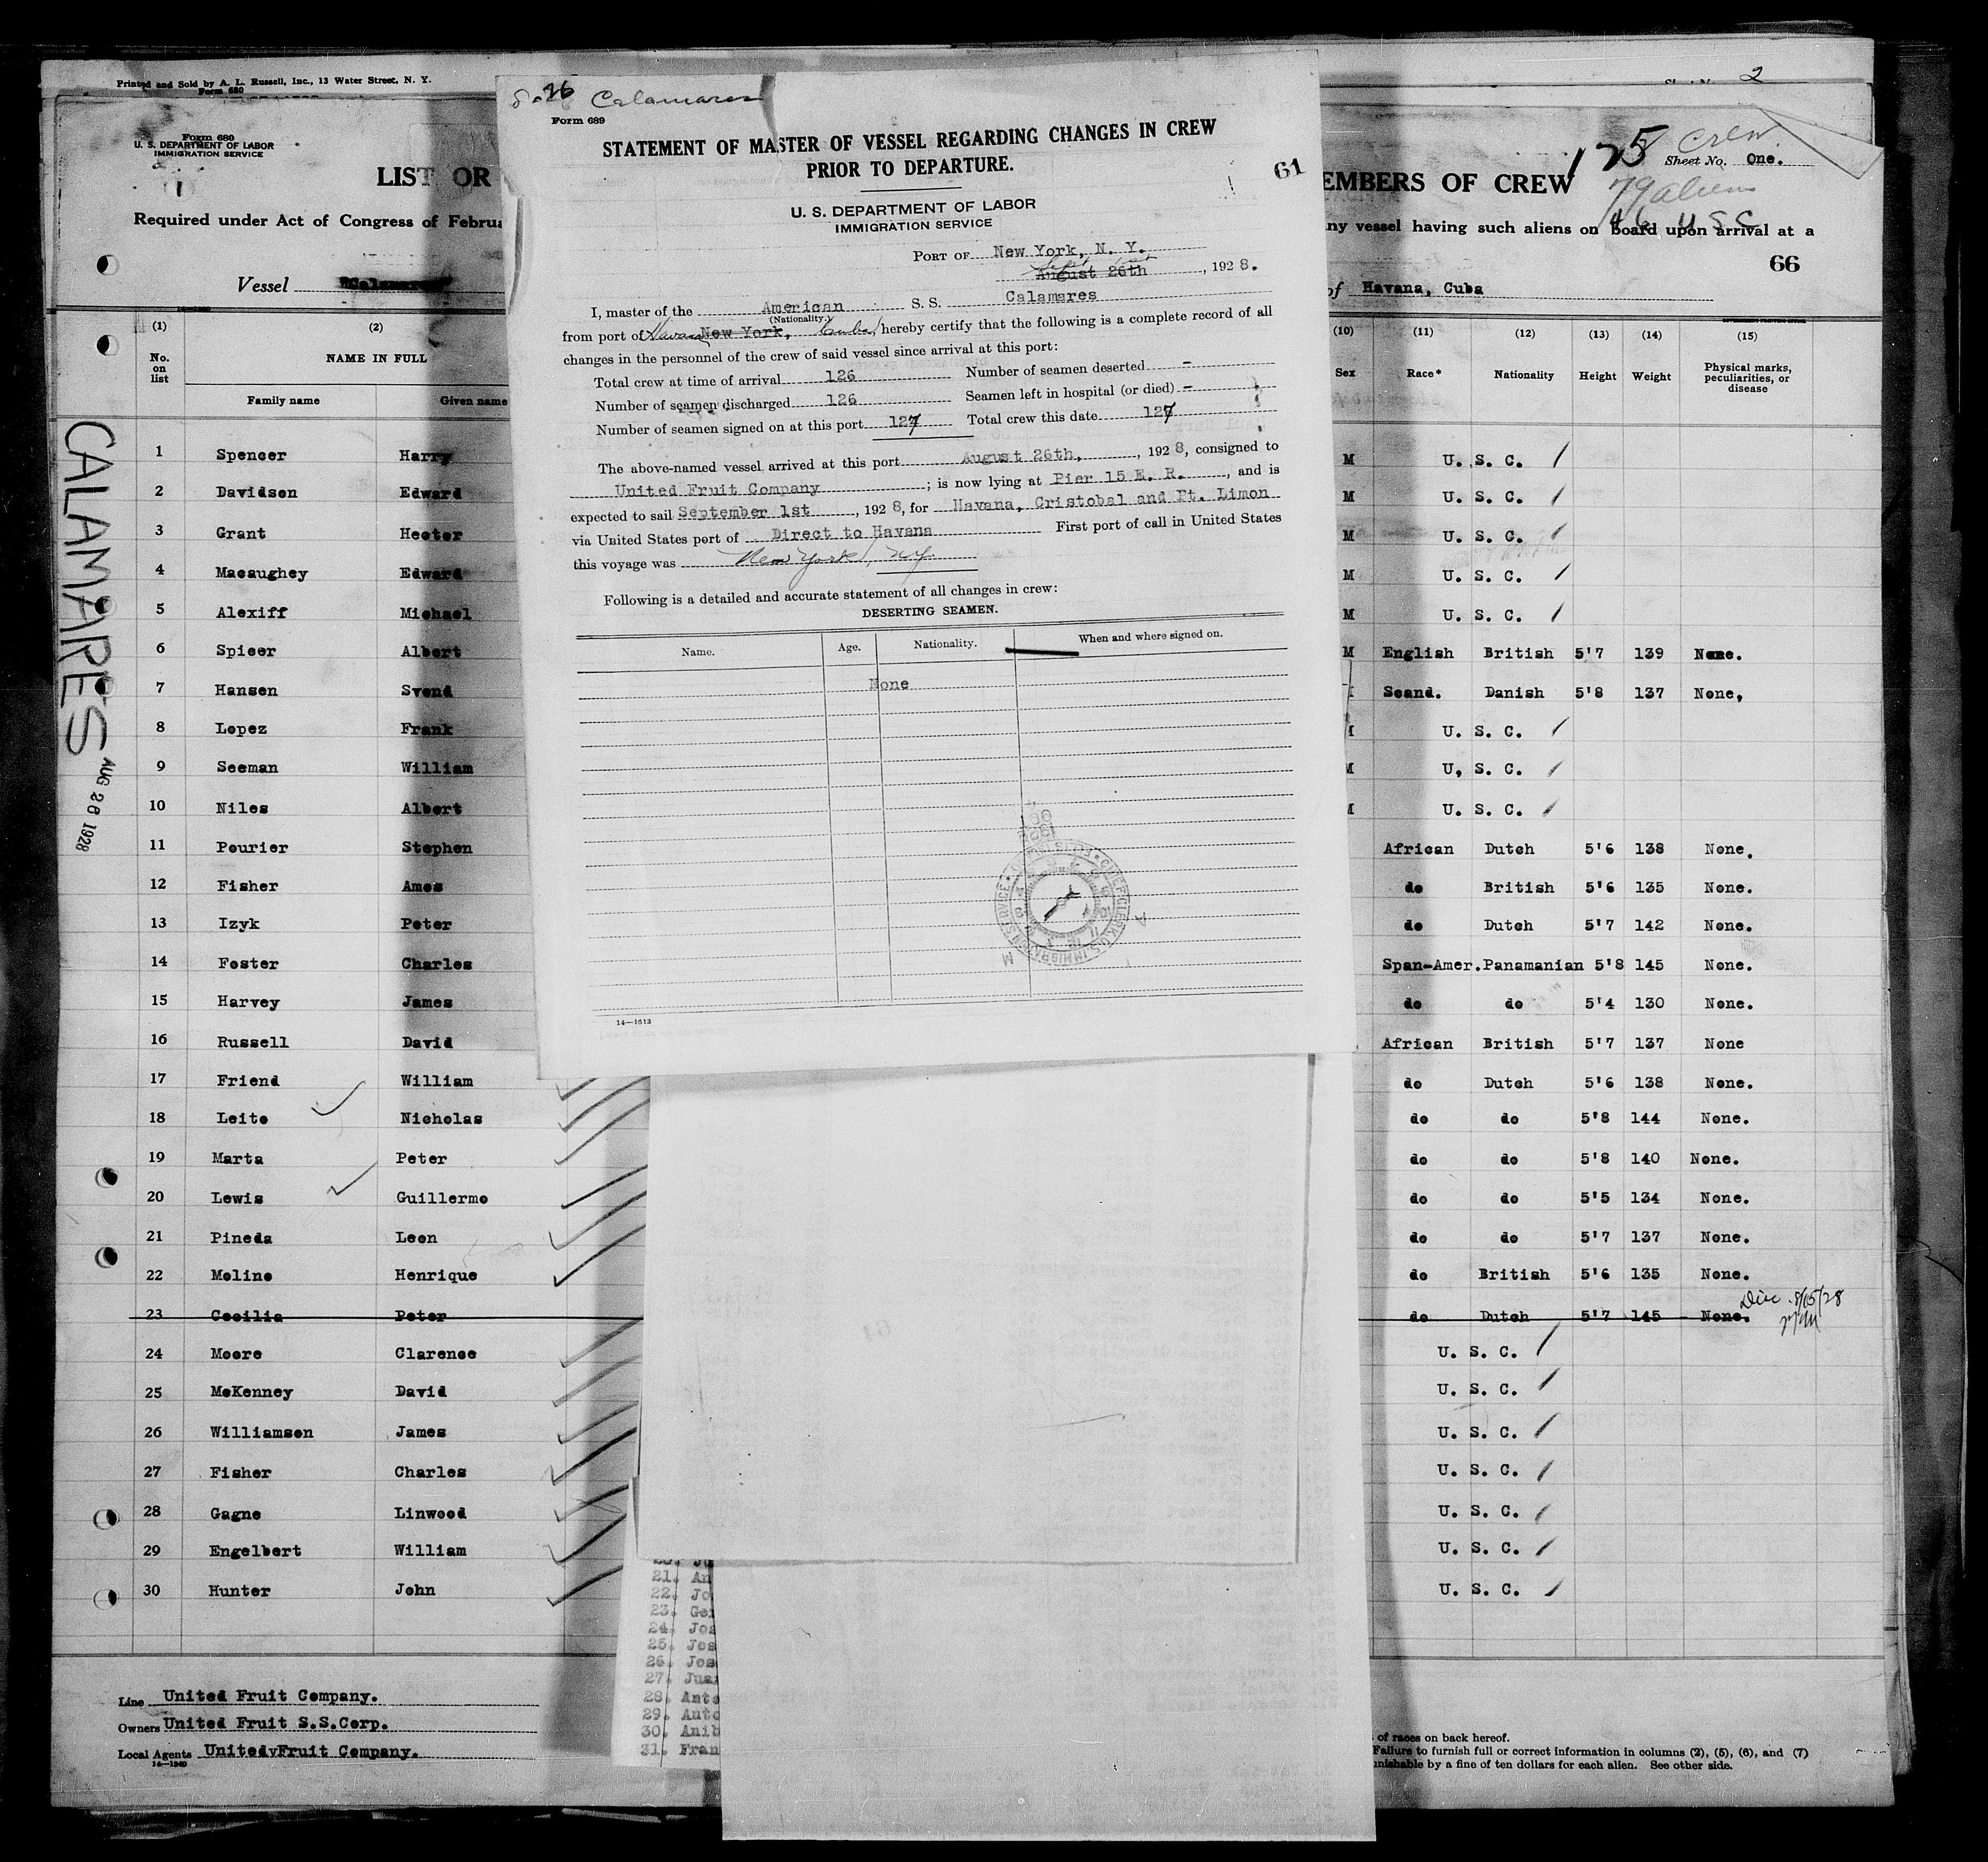 Printed and Sold by A. L. Russell, Inc., 13 Water Street, N. Y.
Form 680
2
Form 680
U. S. DEPARTMENT OF LABOR
IMMIGRATION SERVICE
LIST OR
Required under Act of Congress of Februa
Vessel "Calamares"
(1) (2)
No. on list
NAME IN FULL
Family name Given name
1 Spencer Harry
2 Davidsen Edward
3 Grant Hector
4 Macaughey Edward
5 Alexiff Michael
6 Spicer Albert
7 Hansen Svend
8 Lopez Frank
9 Seeman William
10 Niles Albert
11 Pourier Stephen
12 Fisher Amos
13 Izyk Peter
14 Foster Charles
15 Harvey James
16 Russell David
17 Friend William
18 Leito Nicholas
19 Marta Peter
20 Lewis Guillermo
21 Pineda Leon
22 Molino Henrique
23 Cecilia Peter
24 Moore Clarence
25 McKenney David
26 Williamson James
27 Fisher Charles
28 Gagne Linwood
29 Engelbert William
30 Hunter John
CALAMARES
AUG 26 1928
Line United Fruit Company.
Owners United Fruit S.S.Corp.
Local Agents UnitedvFruit Company.
14—1240
Calamares
Form 689
STATEMENT OF MASTER OF VESSEL REGARDING CHANGES IN CREW
PRIOR TO DEPARTURE.
61
U. S. DEPARTMENT OF LABOR
IMMIGRATION SERVICE
PORT OF New York, N. Y.
August 26th, 1928.
I, master of the American S. S. Calamares
(Nationality.)
from port of Havana New York, Cuba, hereby certify that the following is a complete record of all
changes in the personnel of the crew of said vessel since arrival at this port:
Total crew at time of arrival 126 Number of seamen deserted -
Number of seamen discharged 126 Seamen left in hospital (or died) -
Number of seamen signed on at this port 127 Total crew this date 127
The above-named vessel arrived at this port August 26th, 1928, consigned to
United Fruit Company; is now lying at Pier 15 E. R., and is
expected to sail September 1st, 1928, for Havana, Cristobal and Pt. Limon
via United States port of Direct to Havana First port of call in United States
this voyage was New York, N.Y.
Following is a detailed and accurate statement of all changes in crew:
DESERTING SEAMEN.
Name. Age. Nationality. When and where signed on.
None
14—1613
21. An
22. Jo
23. Ge
24. Jos
25. Jos
26. Jos
27. Jua
28. Anto
29. Anto
30. Anib
31. Fran
175 Crew
Sheet No. One.
79 aliens
46 U S C
EMBERS OF CREW
ny vessel having such aliens on board upon arrival at a
66
of Havana, Cuba
(10) (11) (12) (13) (14) (15)
Sex Race* Nationality Height Weight Physical marks, peculiarities, or disease
M U. S. C.
M U. S. C.
M U. S. C.
M U. S. C.
M U. S. C.
M English British 5'7 139 None.
Scand. Danish 5'8 137 None,
U. S. C.
U, S. C.
U. S. C.
African Dutch 5'6 138 None.
do British 5'6 135 None.
do Dutch 5'7 142 None.
Span-Amer. Panamanian 5'8 145 None.
do do 5'4 130 None.
African British 5'7 137 None
do Dutch 5'6 138 None.
do do 5'8 144 None.
do do 5'8 140 None.
do do 5'5 134 None.
do do 5'7 137 None.
do British 5'6 135 None.
do Dutch 5'7 145 None. Dis. 8/15/28
U. S. C.
U. S. C.
U. S. C.
U. S. C.
U. S. C.
U. S. C.
U. S. C.
of races on back hereof.
Failure to furnish full or correct information in columns (2), (5), (6), and (7)
unishable by a fine of ten dollars for each alien. See other side.